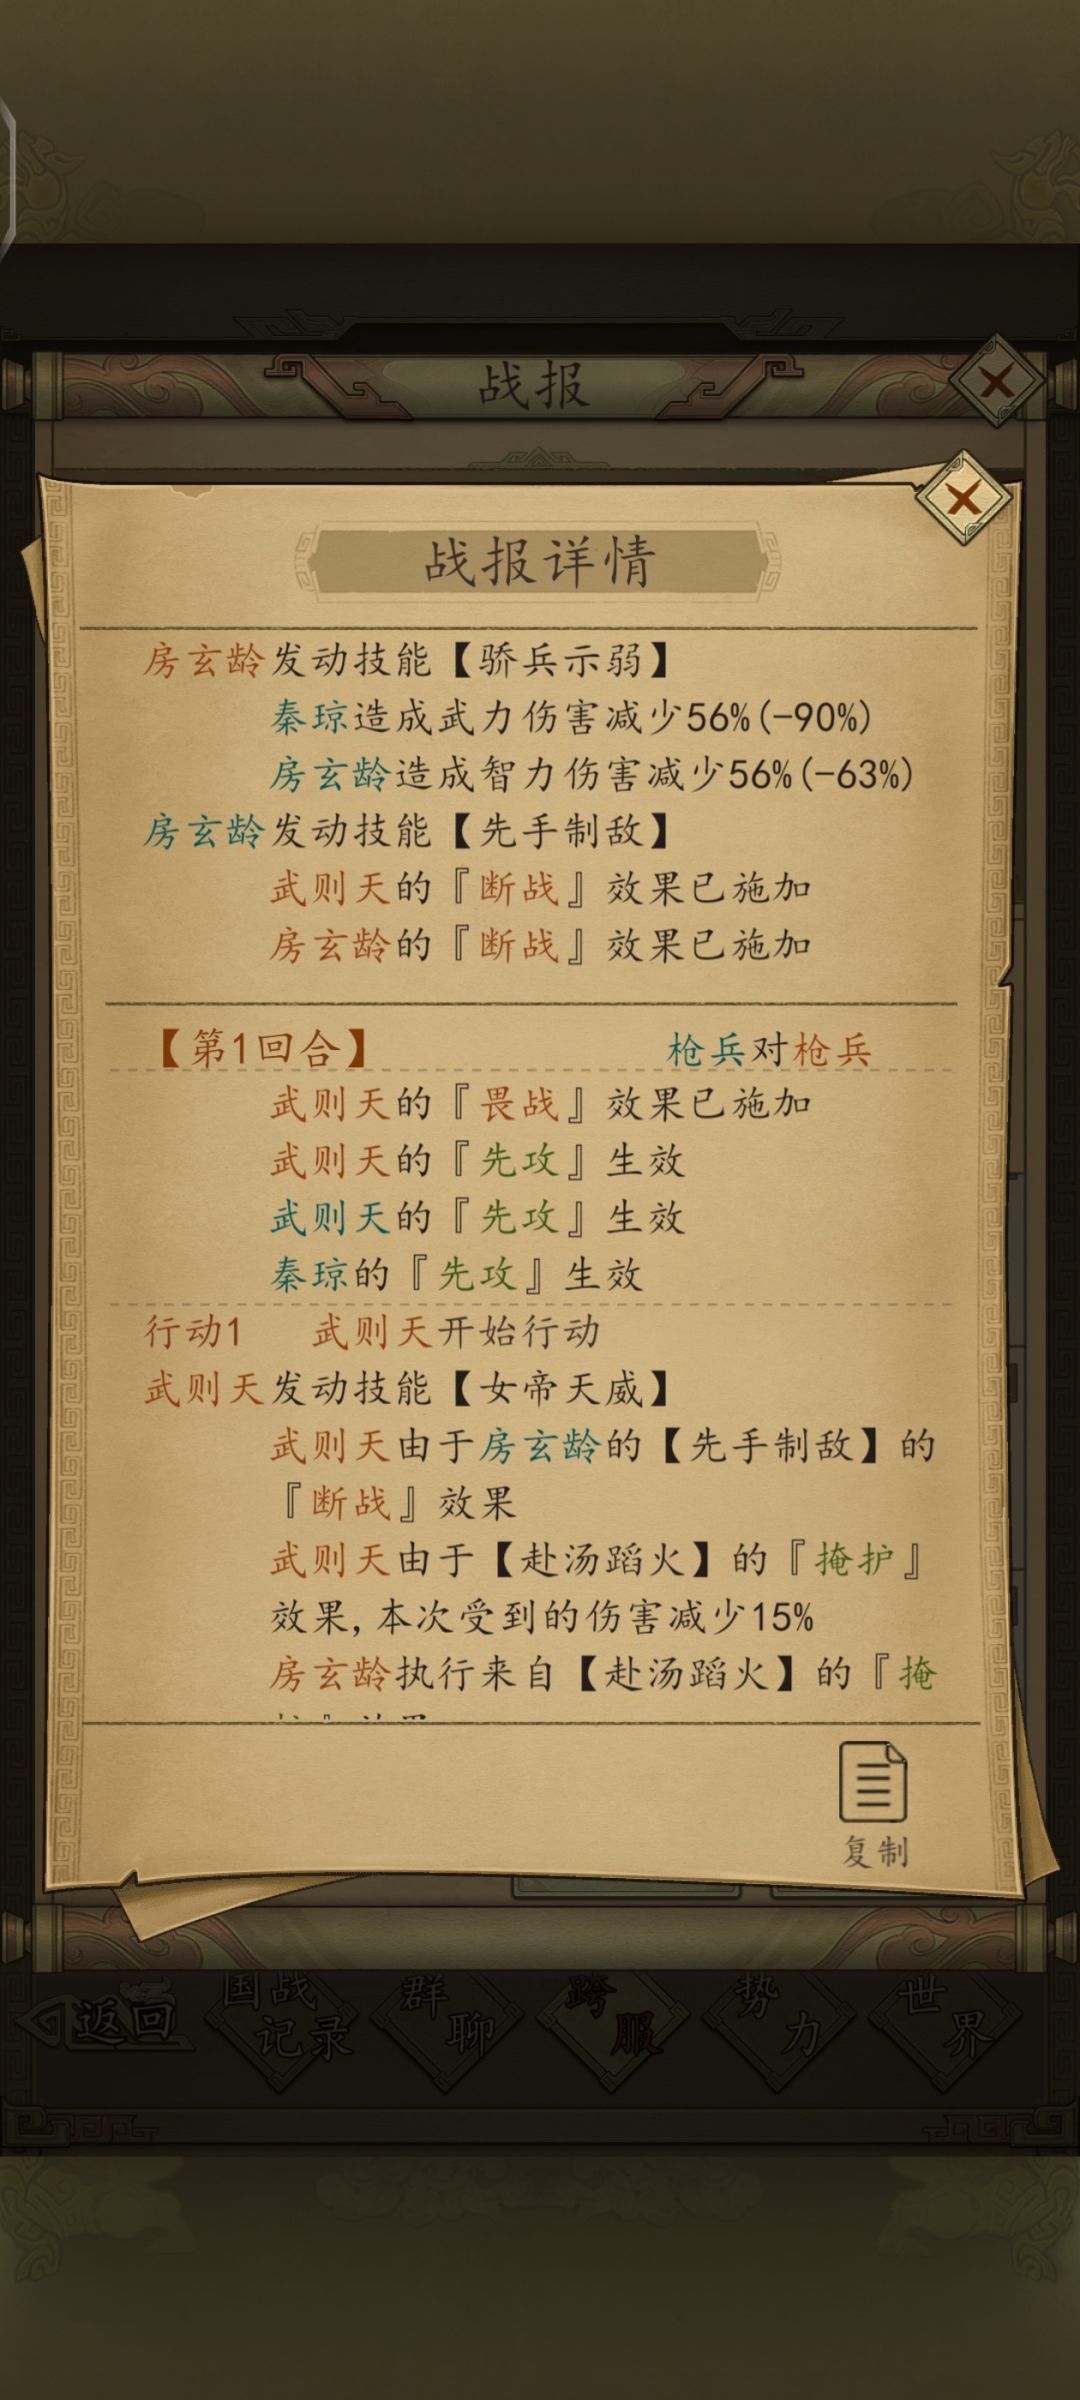 战报
战报详情
房玄龄发动技能【骄兵示弱】
秦琼造成武力伤害减少56%(-90%)
房玄龄造成智力伤害减少56%(-63%)
房玄龄发动技能【先手制敌】
武则天的『断战』效果已施加
房玄龄的『断战』效果已施加
【第1回合】 枪兵对枪兵
武则天的『畏战』效果已施加
武则天的『先攻』生效
武则天的『先攻』生效
秦琼的『先攻』生效
行动1 武则天开始行动
武则天发动技能【女帝天威】
武则天由于房玄龄的【先手制敌】的
『断战』效果
武则天由于【赴汤蹈火】的『掩护』
效果,本次受到的伤害减少15%
房玄龄执行来自【赴汤蹈火】的『掩
复制
返回
国战记录
群聊
跨服
势力
世界